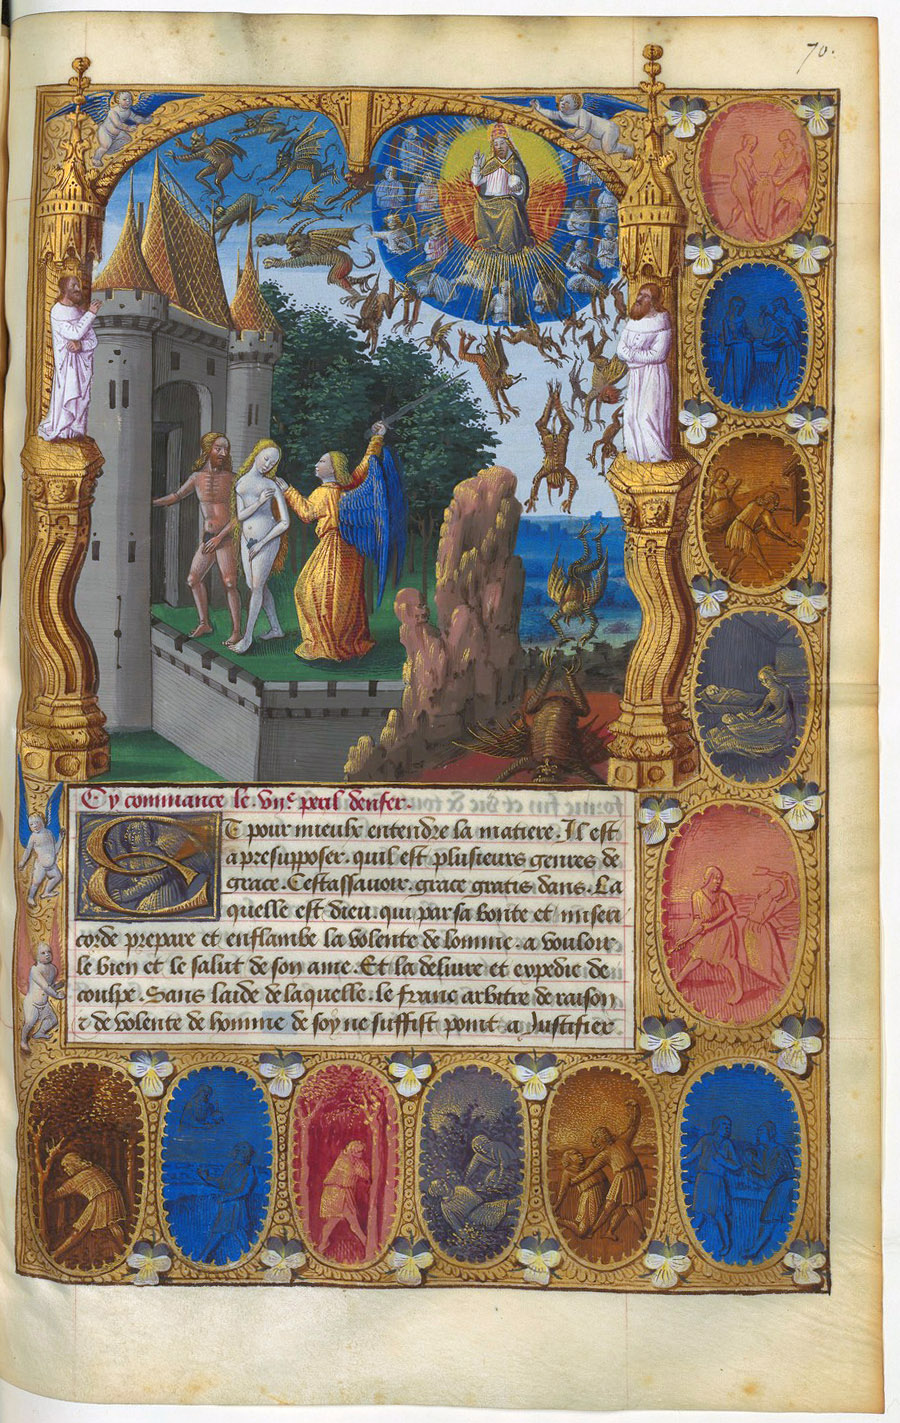 70.
Cy commance le vije peril denfer.
Et pour mieulx entendre la matiere. Il est
a presupposer. quil est plusieurs genres de
grace. Cest assavoir. grace gratis dans. La
quelle est dieu. qui par sa bonte et miseri
corde prepare et enflambe la volente de lomme. a vouloir
le bien et le salut de son ame. Et la delivre et expedie de
coulpe. Sans laide de laquelle. le franc arbitre de raison
et de volente de homme de soy ne suffist point a Justifier